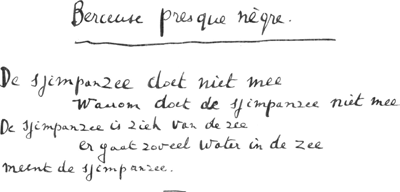 Berceuse presque nègre.
De sjimpanzee doet niet mee
Waarom doet de sjimpanzee niet mee
De sjimpanzee is ziek van de zee
Er gaat zoveel water in de zee
meent de sjimpanzee.